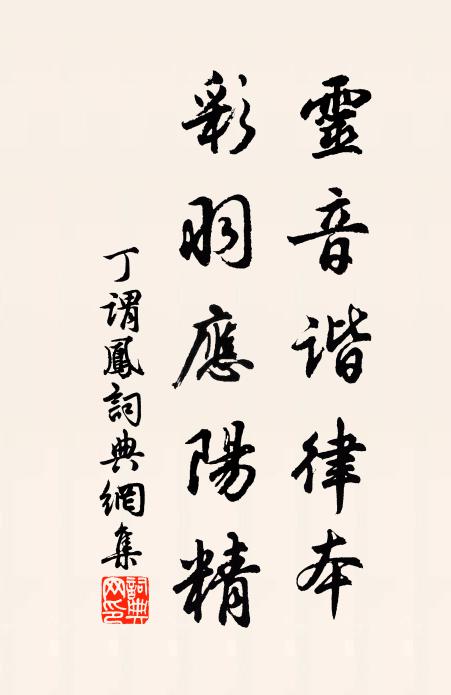 靈音谐律本
彩羽應陽精
丁谓鳳詞典網集
詞典网印